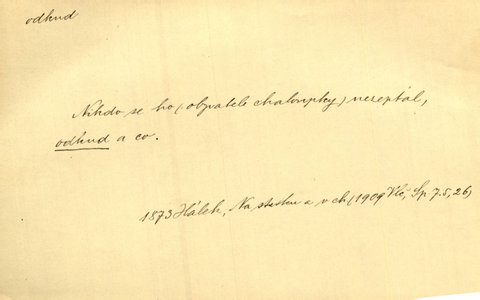 odkud
Nikdo se ho (obyvatele chaloupky) nezeptal,
odkud a co.
1873 Hálek, Na statku a v ch (1909 Vlč, Sp. 7.5, 26)